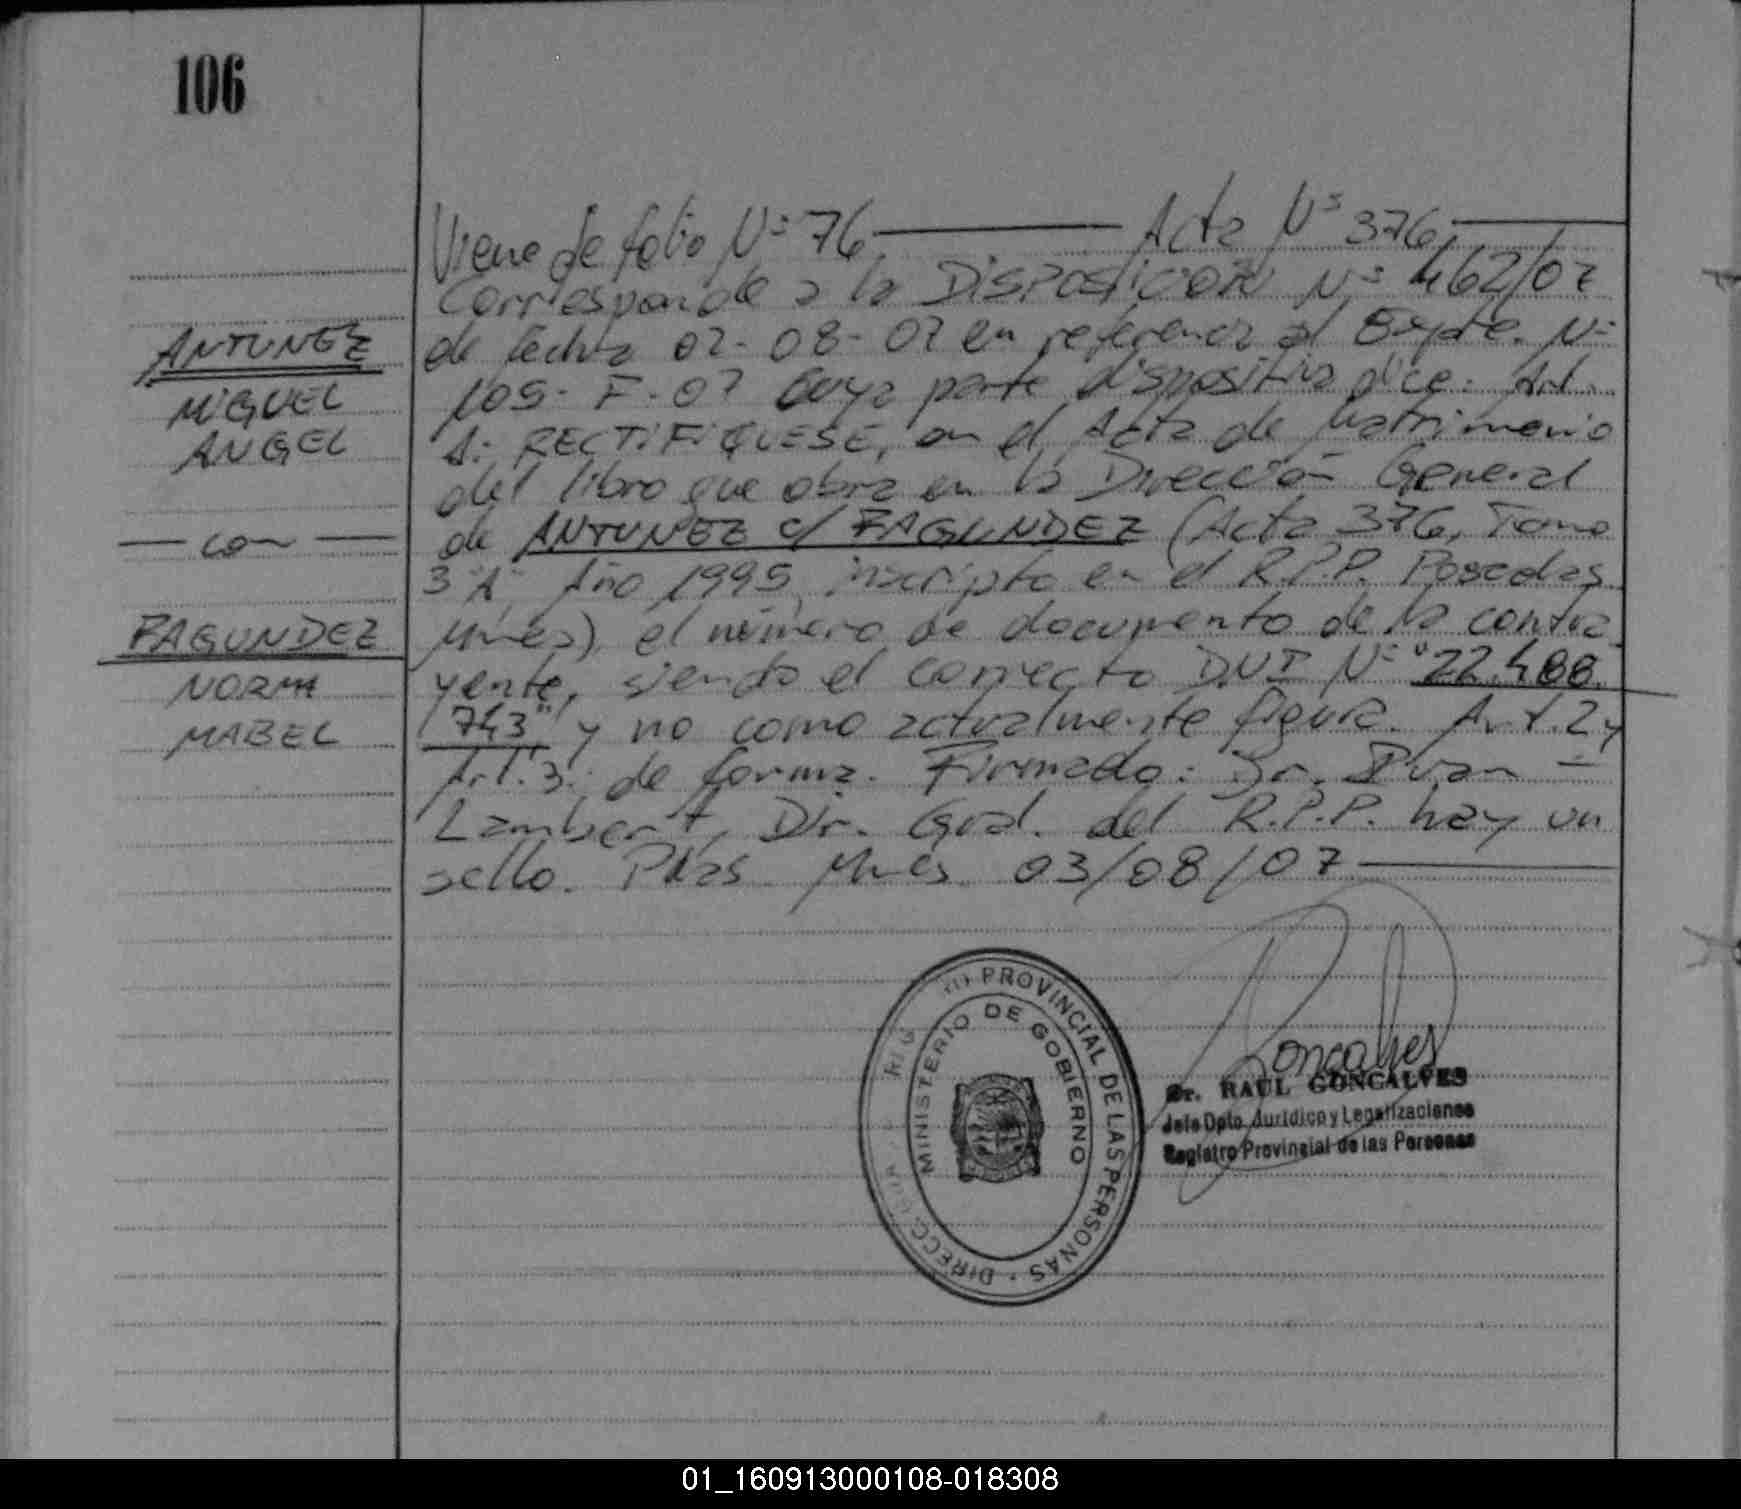 106
ANTUNEZ
MIGUEL
ANGEL
— con —
FAGUNDEZ
NORMA
MABEL
Viene de folio Nº 76 — Acta Nº 376,
Corresponde a la DISPOSICIÓN Nº 462/07
de fecha 02-08-07 en referencia al Expte. Nº
105-F-07 Cuya parte dispositiva dice: Art.
1: RECTIFIQUESE, en el Acta de Matrimonio
del libro que obra en la Dirección General
de ANTUNEZ c/ FAGUNDEZ (Acta 376, Tomo
3"A", Año 1995, inscripto en el R.P.P. Posadas
Mnes), el número de documento de la contra
yente, siendo el correcto D.N.I Nº "22.488.
743" y no como actualmente figura. Art. 2 y
Art. 3: de forma. Firmado: Dr. Ivan
Lambert, Dir. Gral. del R.P.P. hay un
sello. Pdas Mnes 03/08/07
PROVINCIAL DE LAS PERSONAS · DIRECC
MINISTERIO DE GOBIERNO
Goncalves
Dr. RAUL GONCALVES
Jefe Dpto. Jurídico y Legalizaciones
Registro Provincial de las Personas
01_160913000108-018308